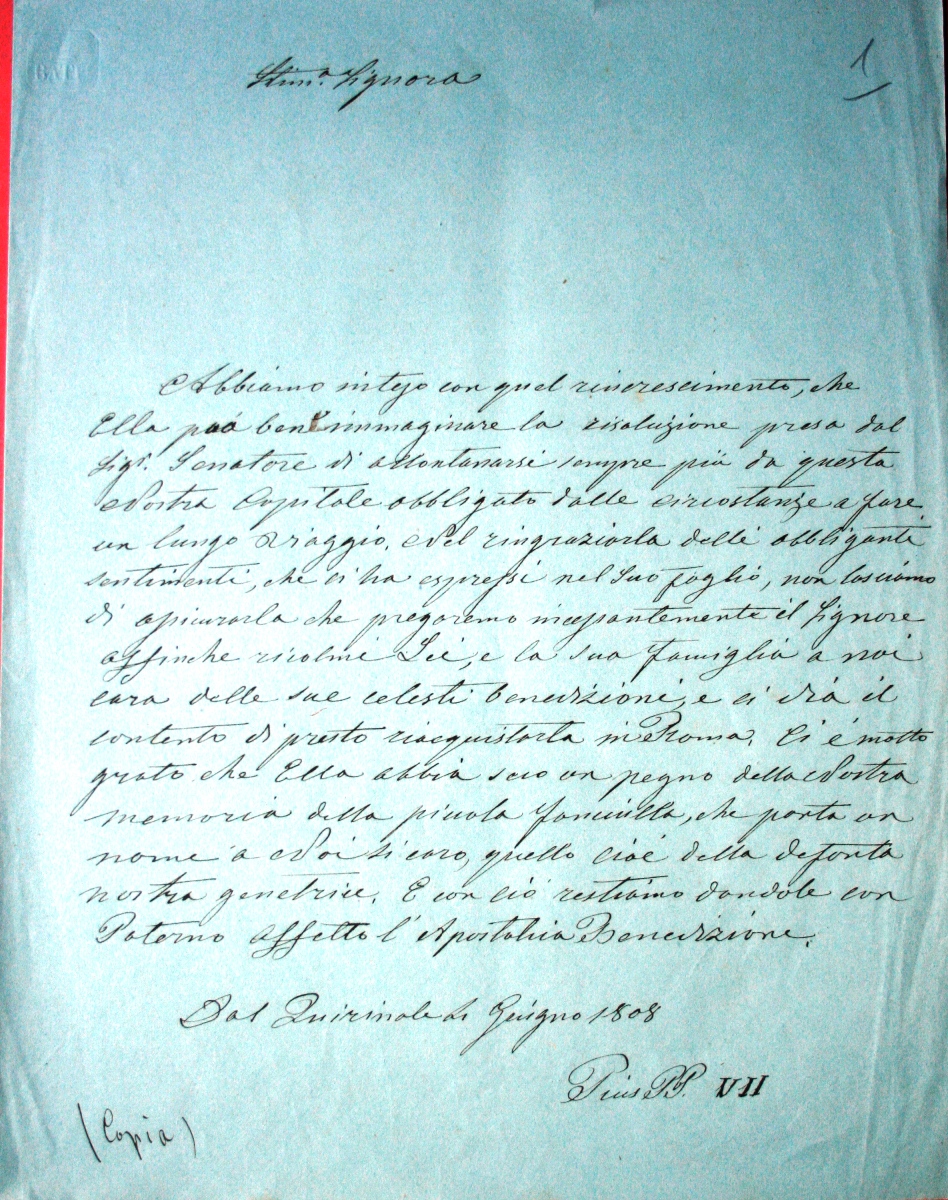 1
Stim.ª Signora
Abbiamo inteso con quel rincrescimento, che
Ella può bene immaginare la risoluzione presa dal
Sigr. Senatore di allontanarsi sempre più da questa
Nostra Capitale obbligato dalle circostanze a fare
un lungo Viaggio. Nel ringraziarla delli obbliganti
sentimenti, che ci ha espressi nel suo foglio, non lasciamo
di assicurarla che pregaremo incessantemente il Signore
affinche ricolmi Lei, e la sua famiglia a noi
cara delle sue celesti benedizioni, e ci dia il
contento di presto riacquistarla in Roma. Ci é molto
grato che Ella abbia seco un pegno della Nostra
memoria della piccola fanciulla, che porta un
nome a Noi si caro, quello cioé della defonta
nostra genetrice. E con ciò restiamo dandole con
Paterno affetto l'Apostolica Benedizione.
Dal Quirinale Giugno 1808
Pius PP. VII
(Copia)